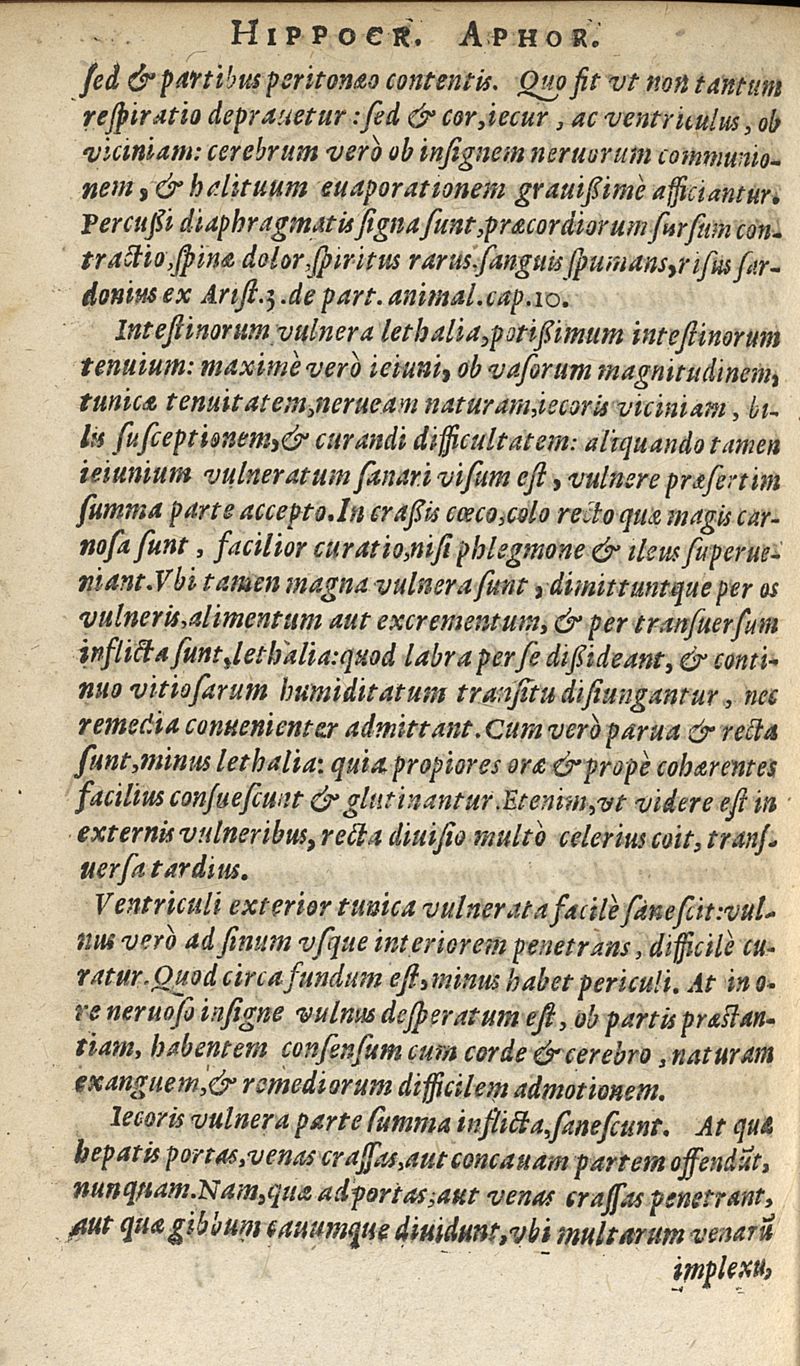 HIPPOCR. APHOR.
sed & partibus peritonæo contentis. Quo fit vt non tantum
respiratio deprauetur : sed & cor, iecur , ac ventriculus, ob
viciniam: cerebrum verò ob insignem neruorum communio-
nem , & halituum euaporationem grauißimè afficiantur.
Percußi diaphragmatis signa sunt, præcordiorum sursum con-
tractio, spinæ dolor, spiritus rarus, sanguis spumans, risus sar-
donius ex Arist. 3. de part. animal. cap. 10.
Intestinorum vulnera lethalia, potißimum intestinorum
tenuium: maximè verò ieiuni, ob vasorum magnitudinem,
tunicæ tenuitatem, nerueam naturam, iecoris viciniam, bi-
lis susceptionem, & curandi difficultatem: aliquando tamen
ieiunium vulneratum sanari visum est, vulnere præsertim
summa parte accepto. In craßis cœco, colo recto quæ magis car-
nosa sunt , facilior curatio, nisi phlegmone & ileus superue-
niant. Vbi tamen magna vulnera sunt , dimittuntque per os
vulneris, alimentum aut excrementum, & per transuersum
inflicta sunt, lethalia: quod labra per se dißideant, & conti-
nuo vitiosarum humiditatum transitu disiungantur, nec
remedia conuenienter admittant. Cum verò parua & recta
sunt, minus lethalia: quia propiores oræ & propè cohærentes
facilius consuescunt & glutinantur. Etenim, vt videre est in
externis vulneribus, recta diuisio multò celerius coit, trans-
uersa tardius.
Ventriculi exterior tunica vulnerata facilè sanescit: vul-
nus verò ad sinum vsque interiorem penetrans, difficilè cu-
ratur. Quod circa fundum est, minus habet periculi. At in o-
re neruoso insigne vulnus desperatum est, ob partis præstan-
tiam, habentem consensum cum corde & cerebro, naturam
exanguem, & remediorum difficilem admotionem.
Iecoris vulnera parte summa inflicta, sanescunt. At quæ
hepatis portas, venas crassas, aut concauam partem offendūt,
nunquam. Nam, quæ ad portas, aut venas crassas penetrant,
aut quæ gibbum cauumque diuidunt, vbi multarum venarū
implexu,